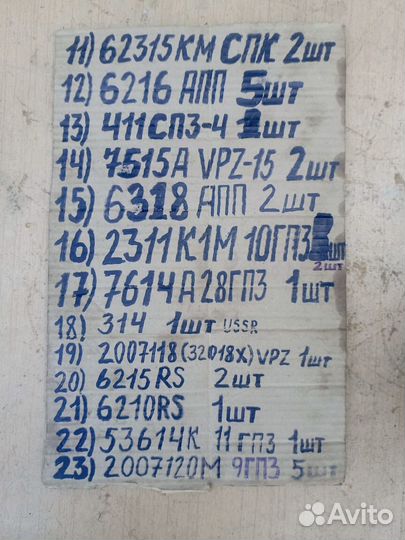 11) 62315КМ СПК 2шт
12) 6216 АПП 5шт
13) 411СПЗ-4 1шт
14) 7515А VPZ-15 2шт
15) 6318 АПП 2шт
16) 2311К1М 10ГПЗ шт
2шт
17) 7614А28ГПЗ 1шт
18) 314 1шт USSR
19) 2007118(32018X)VPZ 1шт
20) 6215RS 2шт
21) 6210RS 1шт
22) 53614К 11ГПЗ 1шт
23) 2007120М 9ГПЗ 5шт
Avito